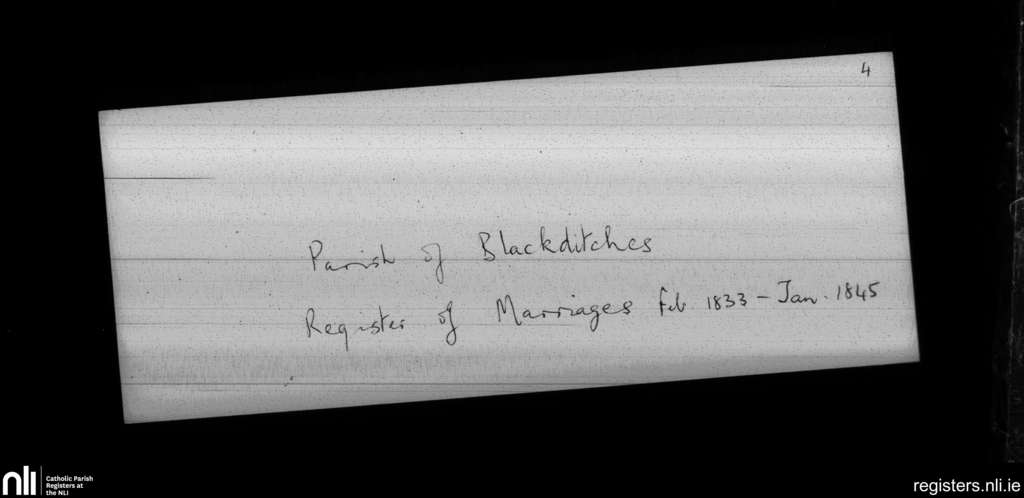 4
Parish of Blackditches
Register of Marriages Feb. 1833 – Jan. 1845
nli
Catholic Parish
Registers at
the NLI
registers.nli.ie